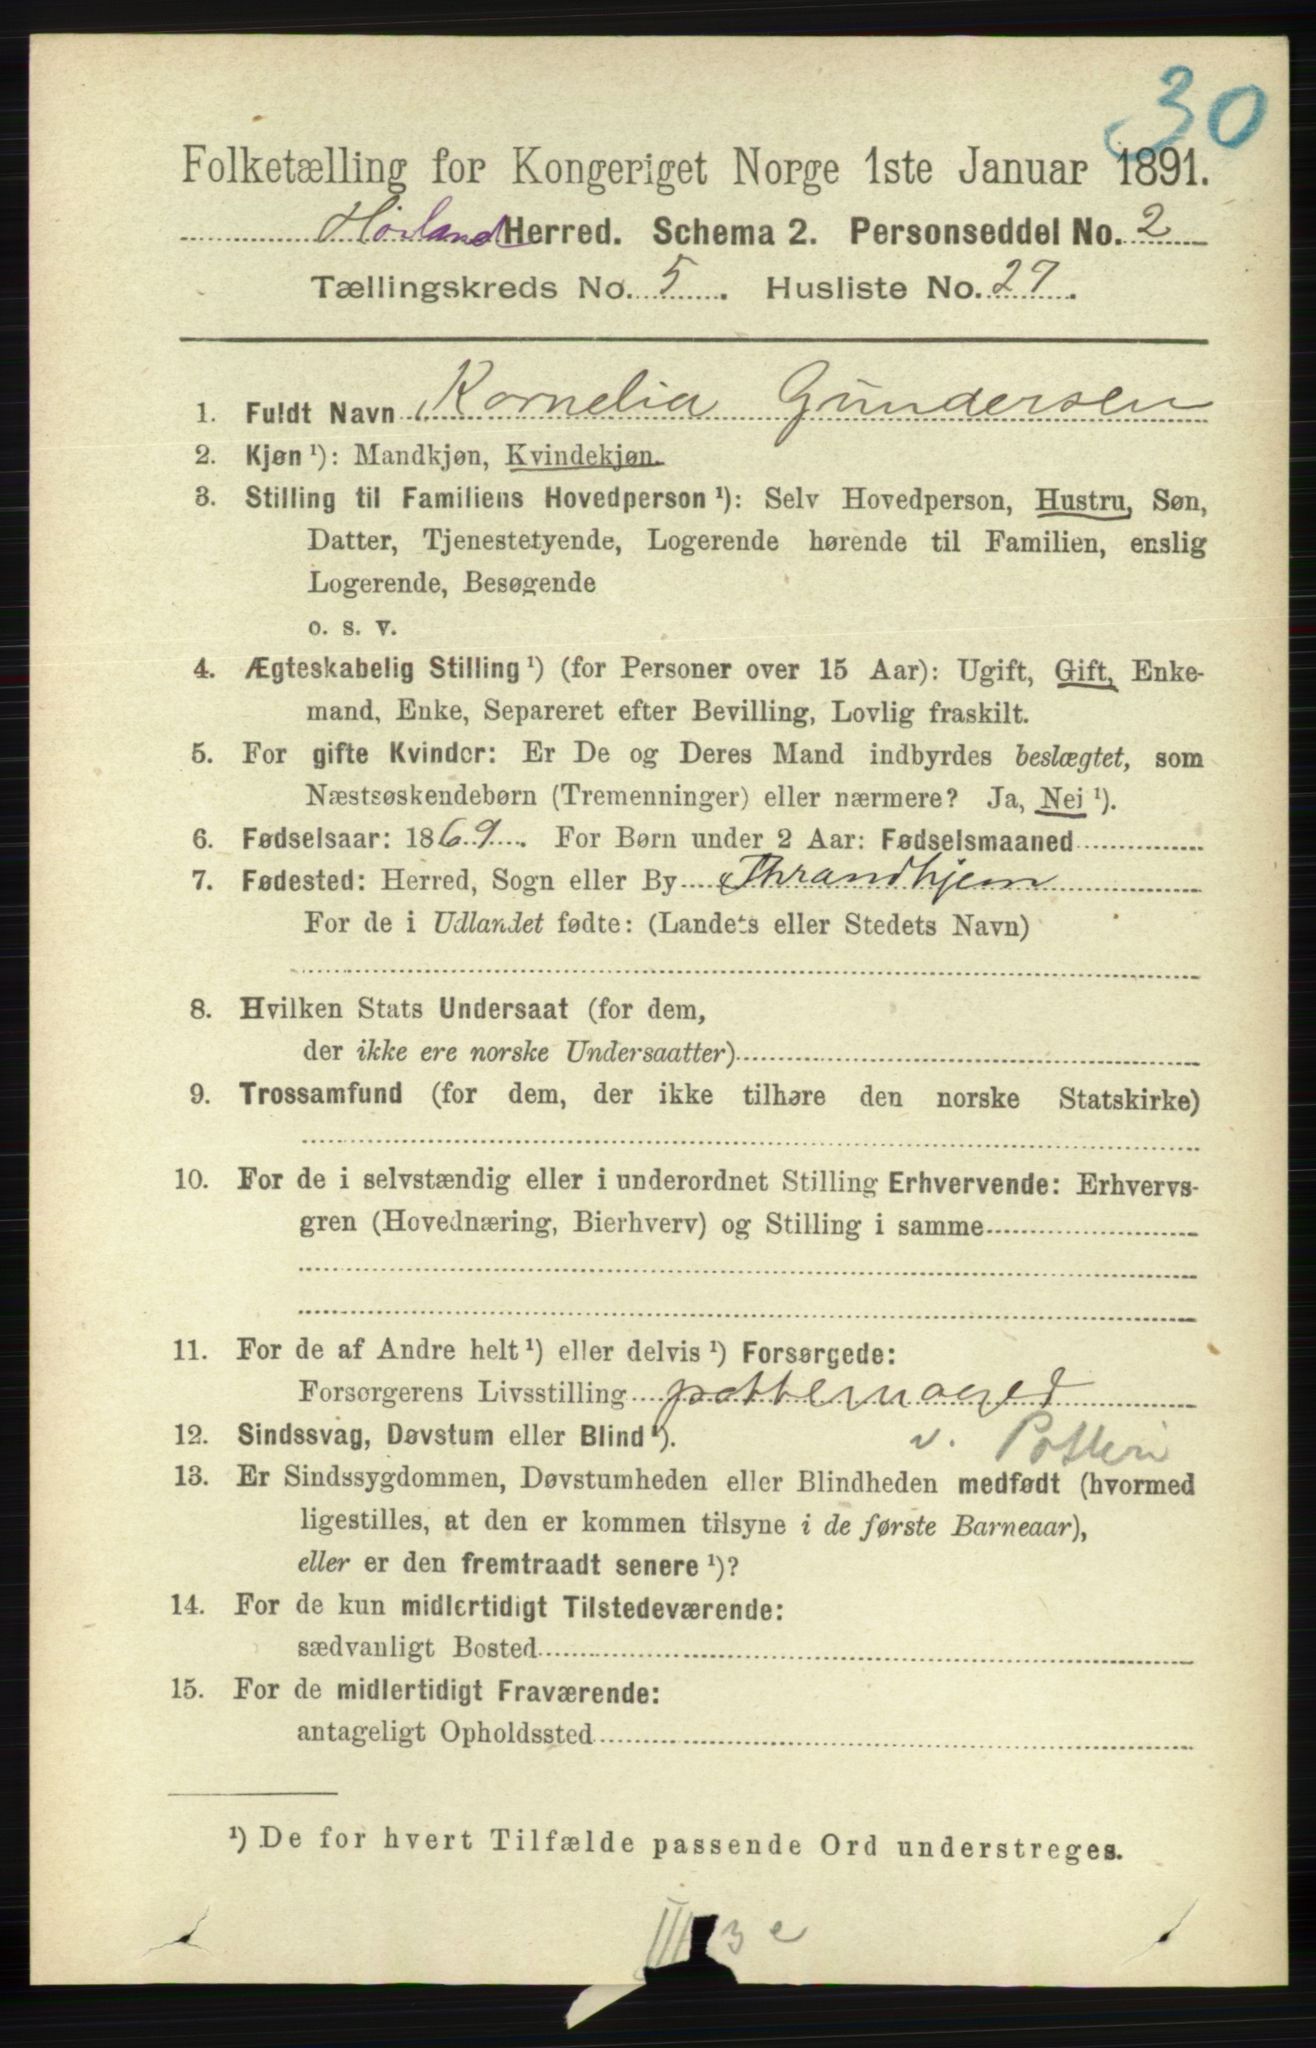 30
Folketælling for Kongeriget Norge 1ste Januar 1891.
Herred. Schema 2. Personseddel No. 2
Tællingskreds No. 5. Husliste No. 27.
1. Fuldt Navn Kornelia Gundersen
2. Kjøn ¹): Mandkjøn, Kvindekjøn.
3. Stilling til Familiens Hovedperson ¹): Selv Hovedperson, Hustru, Søn,
Datter, Tjenestetyende, Logerende hørende til Familien, enslig
Logerende, Besøgende
o. s. v.
4. Ægteskabelig Stilling ¹) (for Personer over 15 Aar): Ugift, Gift, Enke-
mand, Enke, Separeret efter Bevilling, Lovlig fraskilt.
5. For gifte Kvinder: Er De og Deres Mand indbyrdes beslægtet, som
Næstsøskendebørn (Tremenninger) eller nærmere? Ja, Nei ¹).
6. Fødselsaar: 1869. For Børn under 2 Aar: Fødselsmaaned
7. Fødested: Herred, Sogn eller By Thrandhjem
For de i Udlandet fødte: (Landets eller Stedets Navn)
8. Hvilken Stats Undersaat (for dem,
der ikke ere norske Undersaatter)
9. Trossamfund (for dem, der ikke tilhøre den norske Statskirke)
10. For de i selvstændig eller i underordnet Stilling Erhvervende: Erhvervs-
gren (Hovednæring, Bierhverv) og Stilling i samme
11. For de af Andre helt ¹) eller delvis ¹) Forsørgede:
Forsørgerens Livsstilling
12. Sindssvag, Døvstum eller Blind ¹). v. Potteri
13. Er Sindssygdommen, Døvstumheden eller Blindheden medfødt (hvormed
ligestilles, at den er kommen tilsyne i de første Barneaar),
eller er den fremtraadt senere ¹)?
14. For de kun midlertidigt Tilstedeværende:
sædvanligt Bosted
15. For de midlertidigt Fraværende:
antageligt Opholdssted
¹) De for hvert Tilfælde passende Ord understreges.
3 e